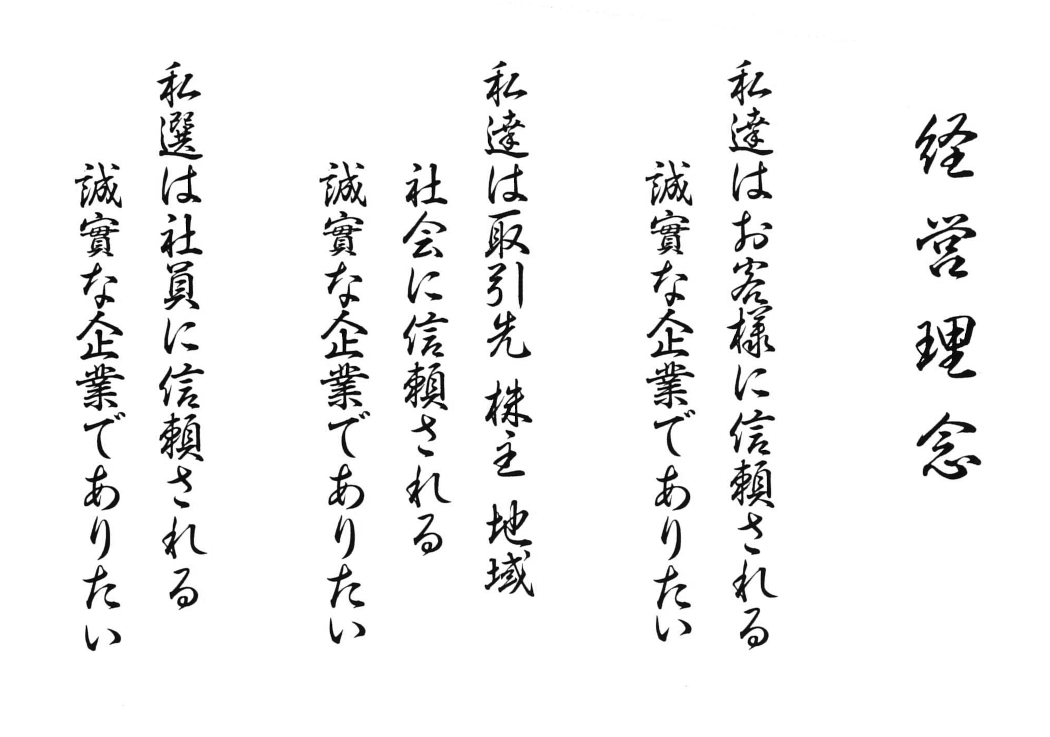 経営理念
私達はお客様に信頼される
誠實な企業でありたい
私達は取引先 株主 地域
社会に信頼される
誠實な企業でありたい
私選は社員に信頼される
誠實な企業でありたい